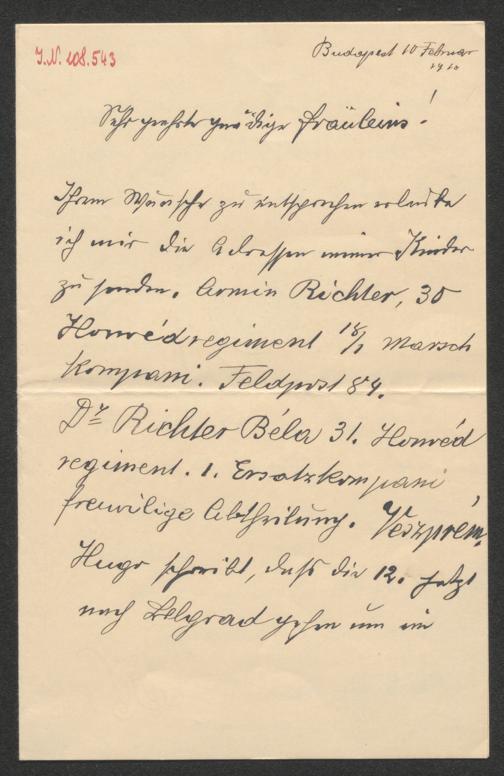 I.N. 108.543
Budapest 10 Februar
1916
Sehr geehrte gnädige Fräuleins!
Ihrem Wunsche zu entsprechen erlaube
ich mir die Adressen meiner Kinder
zu senden. Armin Richter, 30
Honvédregiment 18/1 Marsch
Kompani. Feldpost 84.
Dr Richter Béla 31. Honvéd
regiment. 1. Ersatzkompani
freiwilige Abtheilung. Veszprém.
Hugo schreibt, dass die 12. jetzt
nach Belgrad gehen um im